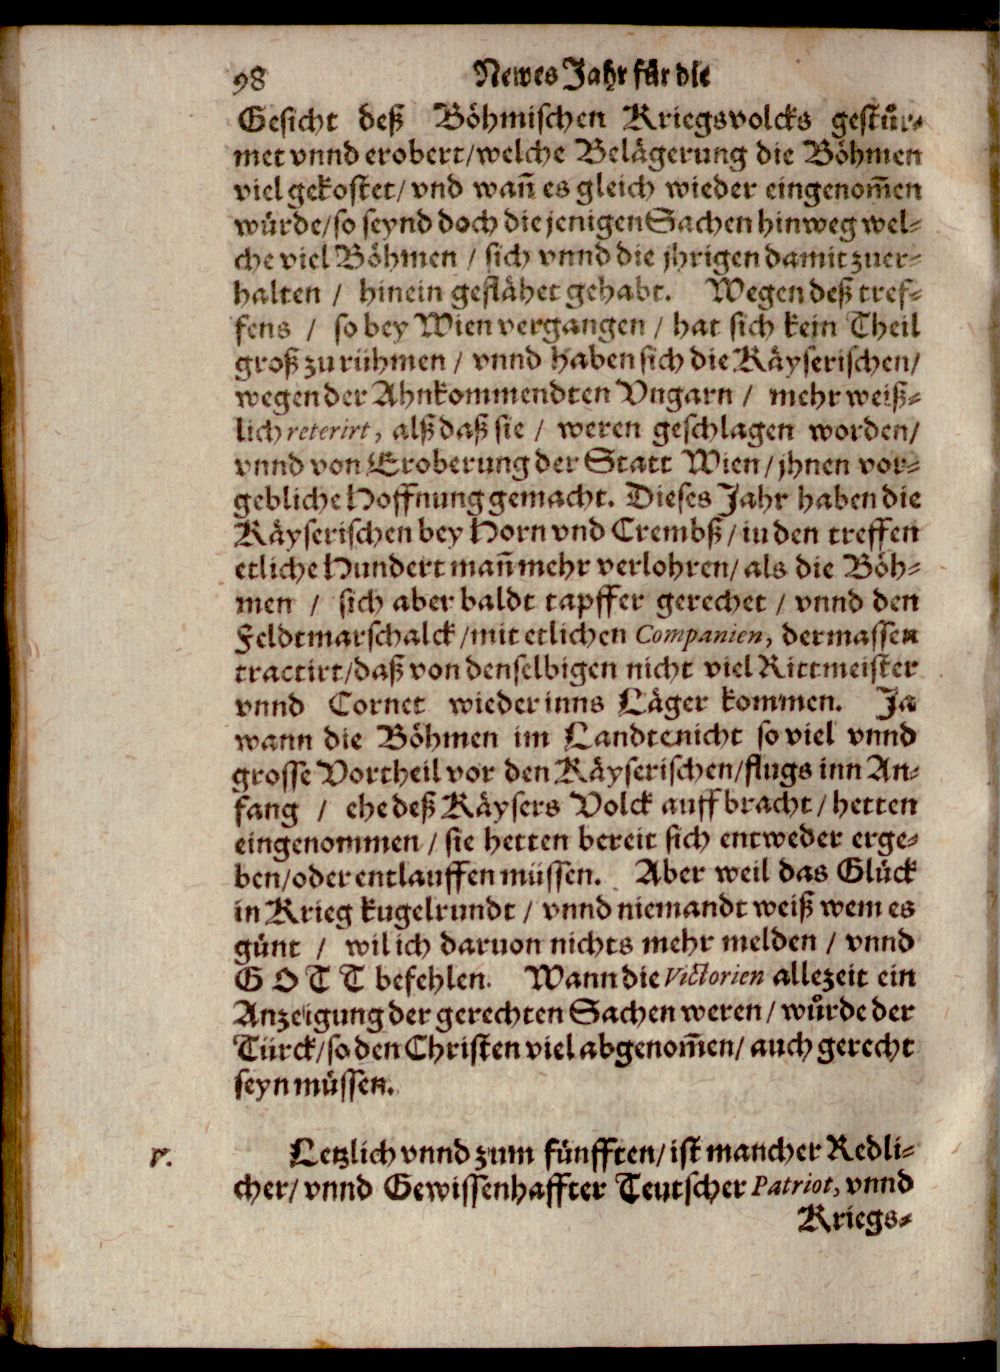 98 Newes Jahr für die
Gesicht deß Böhmischen Kriegsvolcks gestür-
met vnnd erobert/welche Belägerung die Böhmen
viel gekostet/ vnd wañ es gleich wieder eingenom̃en
würde/so seynd doch die jenigen Sachen hinweg wel-
che viel Böhmen / sich vnnd die jhrigen damit zuer-
halten / hinein geflähet gehabt. Wegen deß tref-
fens / so bey Wien vergangen / hat sich kein Theil
groß zu rühmen / vnnd haben sich die Käyserischen/
wegen der Ahnkommendten Vngarn / mehr weiß-
lich reterirt, alß daß sie / weren geschlagen worden/
vnnd von Eroberung der Statt Wien/jhnen vor-
gebliche Hoffnung gemacht. Dieses Jahr haben die
Käyserischen bey Horn vnd Crembß/in den treffen
etliche Hundert mañ mehr verlohren/als die Böh-
men / sich aber baldt tapffer gerechet / vnnd den
Feldtmarschalck/mit etlichen Companien, dermassen
tractirt/daß von denselbigen nicht viel Rittmeister
vnnd Cornet wieder inns Läger kommen. Ja
wann die Böhmen im Landte nicht so viel vnnd
grosse Vortheil vor den Käyserischen/flugs inn An-
fang / ehe deß Käysers Volck auffbracht/hetten
eingenommen/sie hetten bereit sich entweder erge-
ben/oder entlauffen müssen. Aber weil das Glück
in Krieg kugelrundt / vnnd niemandt weiß wem es
günt / wil ich daruon nichts mehr melden / vnnd
G O T T befehlen. Wann die Victorien allezeit ein
Anzeigung der gerechten Sachen weren/würde der
Türck/so den Christen viel abgenom̃en/auch gerecht
seyn müssen.
v. Letzlich vnnd zum fünfften/ist mancher Redli-
cher/vnnd Gewissenhaffter Teutscher Patriot, vnnd
Kriegs-